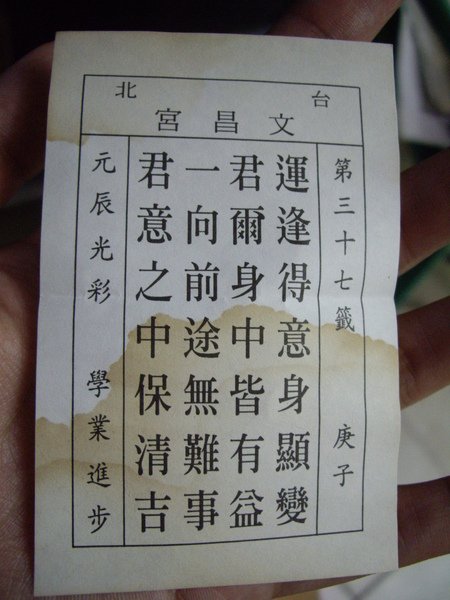 台北
文昌宮
第三十七籤 庚子
運逢得意身顯變
君爾身中皆有益
一向前途無難事
君意之中保清吉
元辰光彩 學業進步